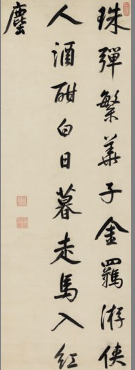 珠彈繁華子金羈游俠
人酒酣白日暮走馬入紅
塵